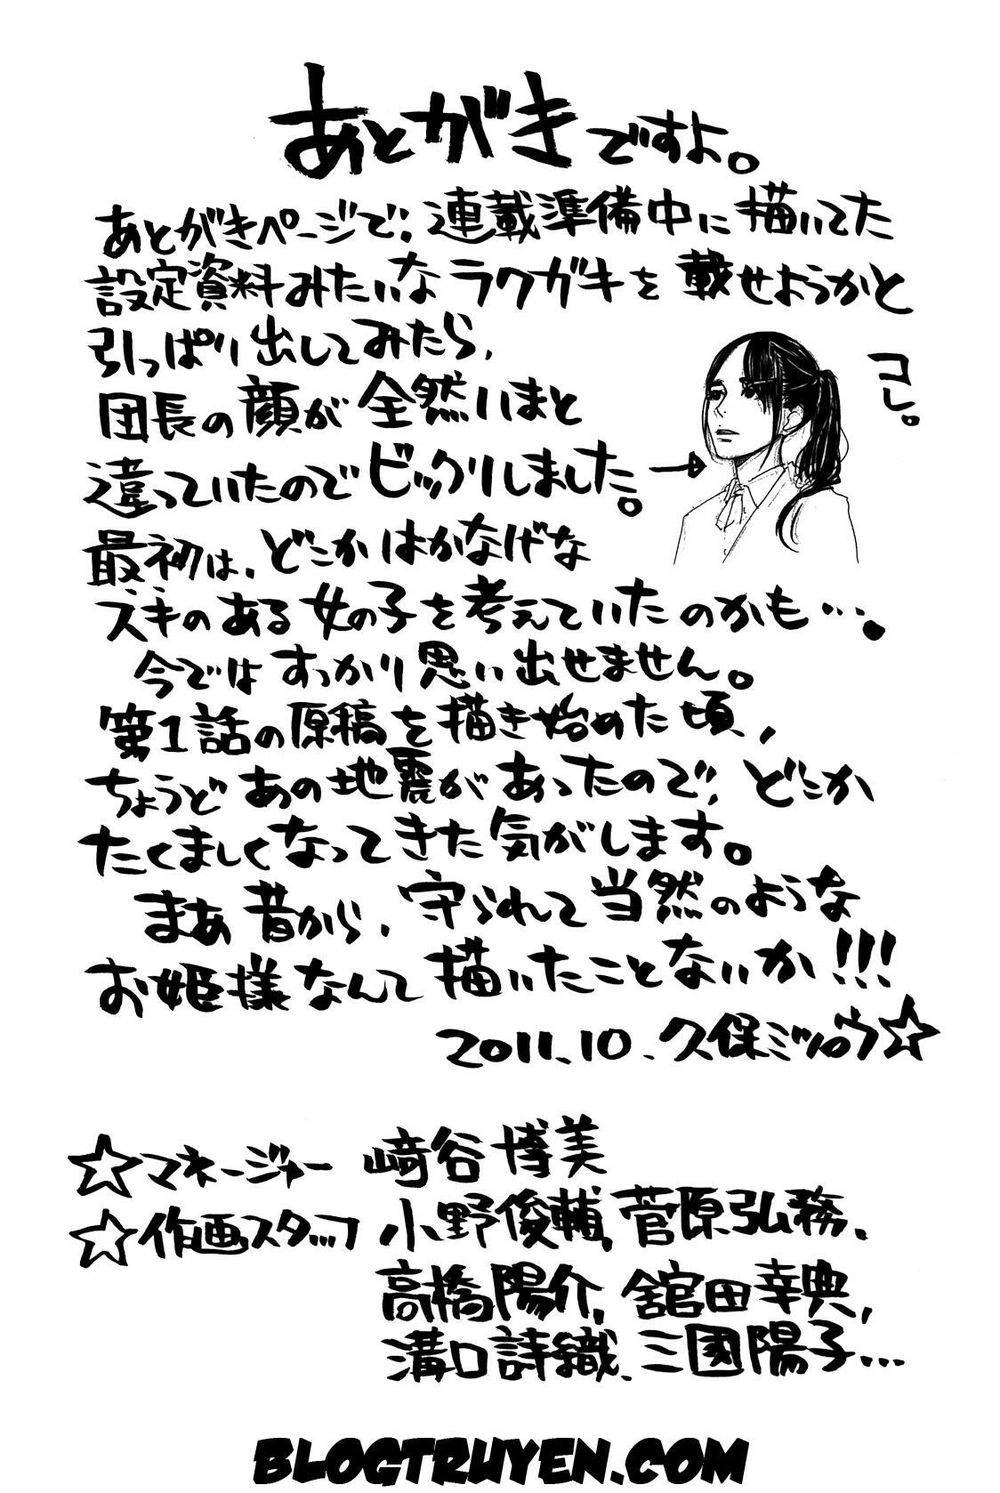 あとがきですよ。
あとがきページで、連載準備中に描いてた
設定資料みたいなラクガキを載せようかと
引っぱり出してみたら、
コレ。
団長の顔が全然いまと
違っていたのでビックリしました。→
最初は、どこかはかなげな
ズキのある女の子を考えていたのかも…。
今ではすっかり思い出せません。
第1話の原稿を描き始めた頃、
ちょうどあの地震があったので、どこか
たくましくなってきた気がします。
まあ昔から、守られて当然のような
お姫様なんて描いたことないか!!!
2011.10.久保ミツロウ☆
☆マネージャー 﨑谷博美
☆作画スタッフ 小野俊輔、菅原弘務、
高橋陽介、舘田幸典、
溝口詩織、三國陽子…
BLOGTRUYEN.COM